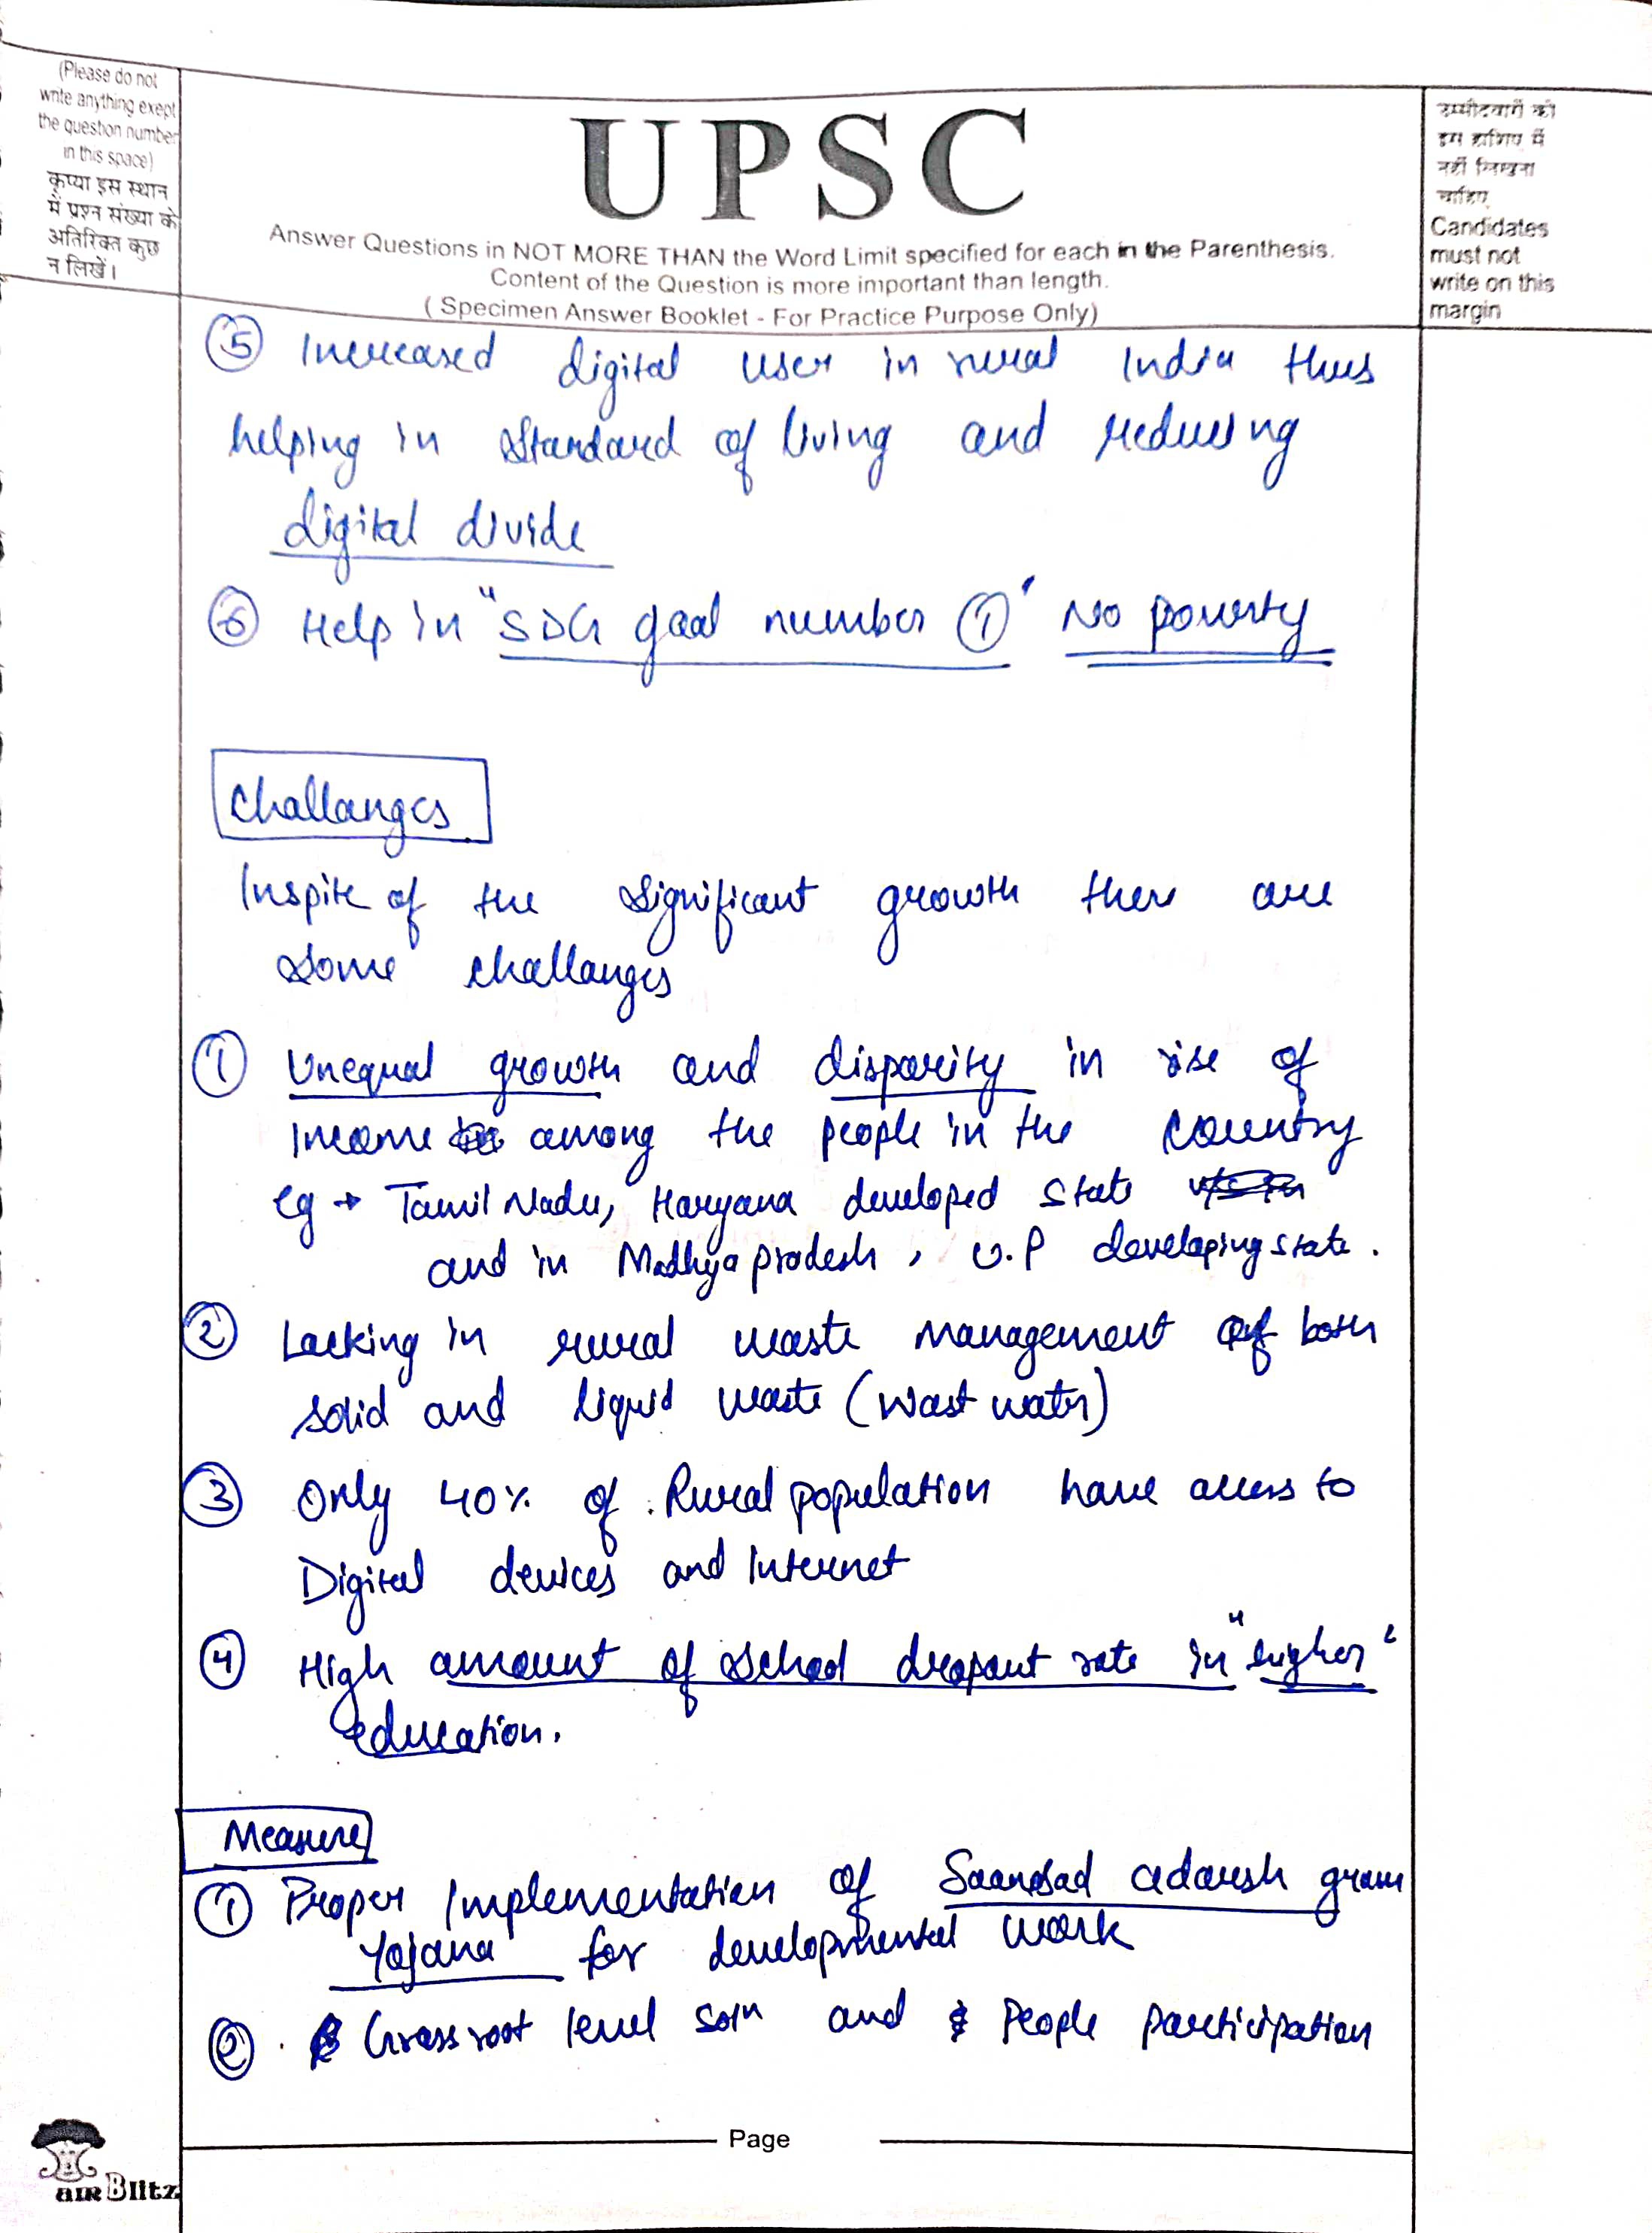 (Please do not
write anything exept
the question number
in this space)
कृप्या इस स्थान
में प्रश्न संख्या के
अतिरिक्त कुछ
न लिखें।
UPSC
Answer Questions in NOT MORE THAN the Word Limit specified for each in the Parenthesis.
Content of the Question is more important than length.
( Specimen Answer Booklet - For Practice Purpose Only)
उम्मीदवारों को
इस हाशिए में
नहीं लिखना
चाहिए
Candidates
must not
write on this
margin
⑤ Increased digital user in rural India thus
helping in standard of living and reducing
digital divide
⑥ Help in "SDG goal number ①" No poverty
Challanges
Inspite of the significant growth there are
some challanges
① Unequal growth and disparity in rise of
Income among the people in the country
eg → Tamil Nadu, Haryana developed state
and in Madhya pradesh, U.P developing state.
② Lacking in rural waste management of both
solid and liquid waste (Wast water)
③ Only 40% of Rural population have access to
Digital devices and Internet
④ High amount of school dropout rate in "higher"
education.
Measure
① Proper Implementation of Saansad adarsh gram
Yojana for developmental work
② Grassroot level and People participation
Page
AIR Blitz